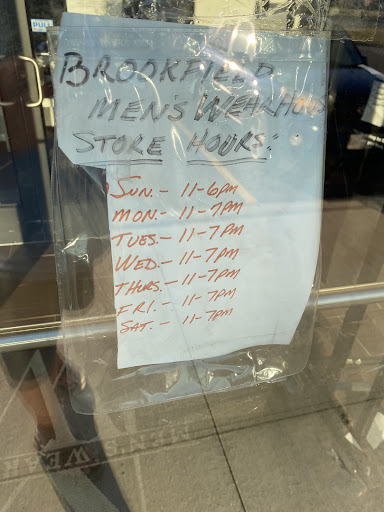 PULL
BROOKFIELD
MEN'S WEARHO
STORE HOURS:
SUN. - 11-6PM
MON. - 11-7PM
TUES. - 11-7PM
WED. - 11-7PM
THURS. - 11-7PM
FRI. - 11-7PM
SAT. - 11-7PM